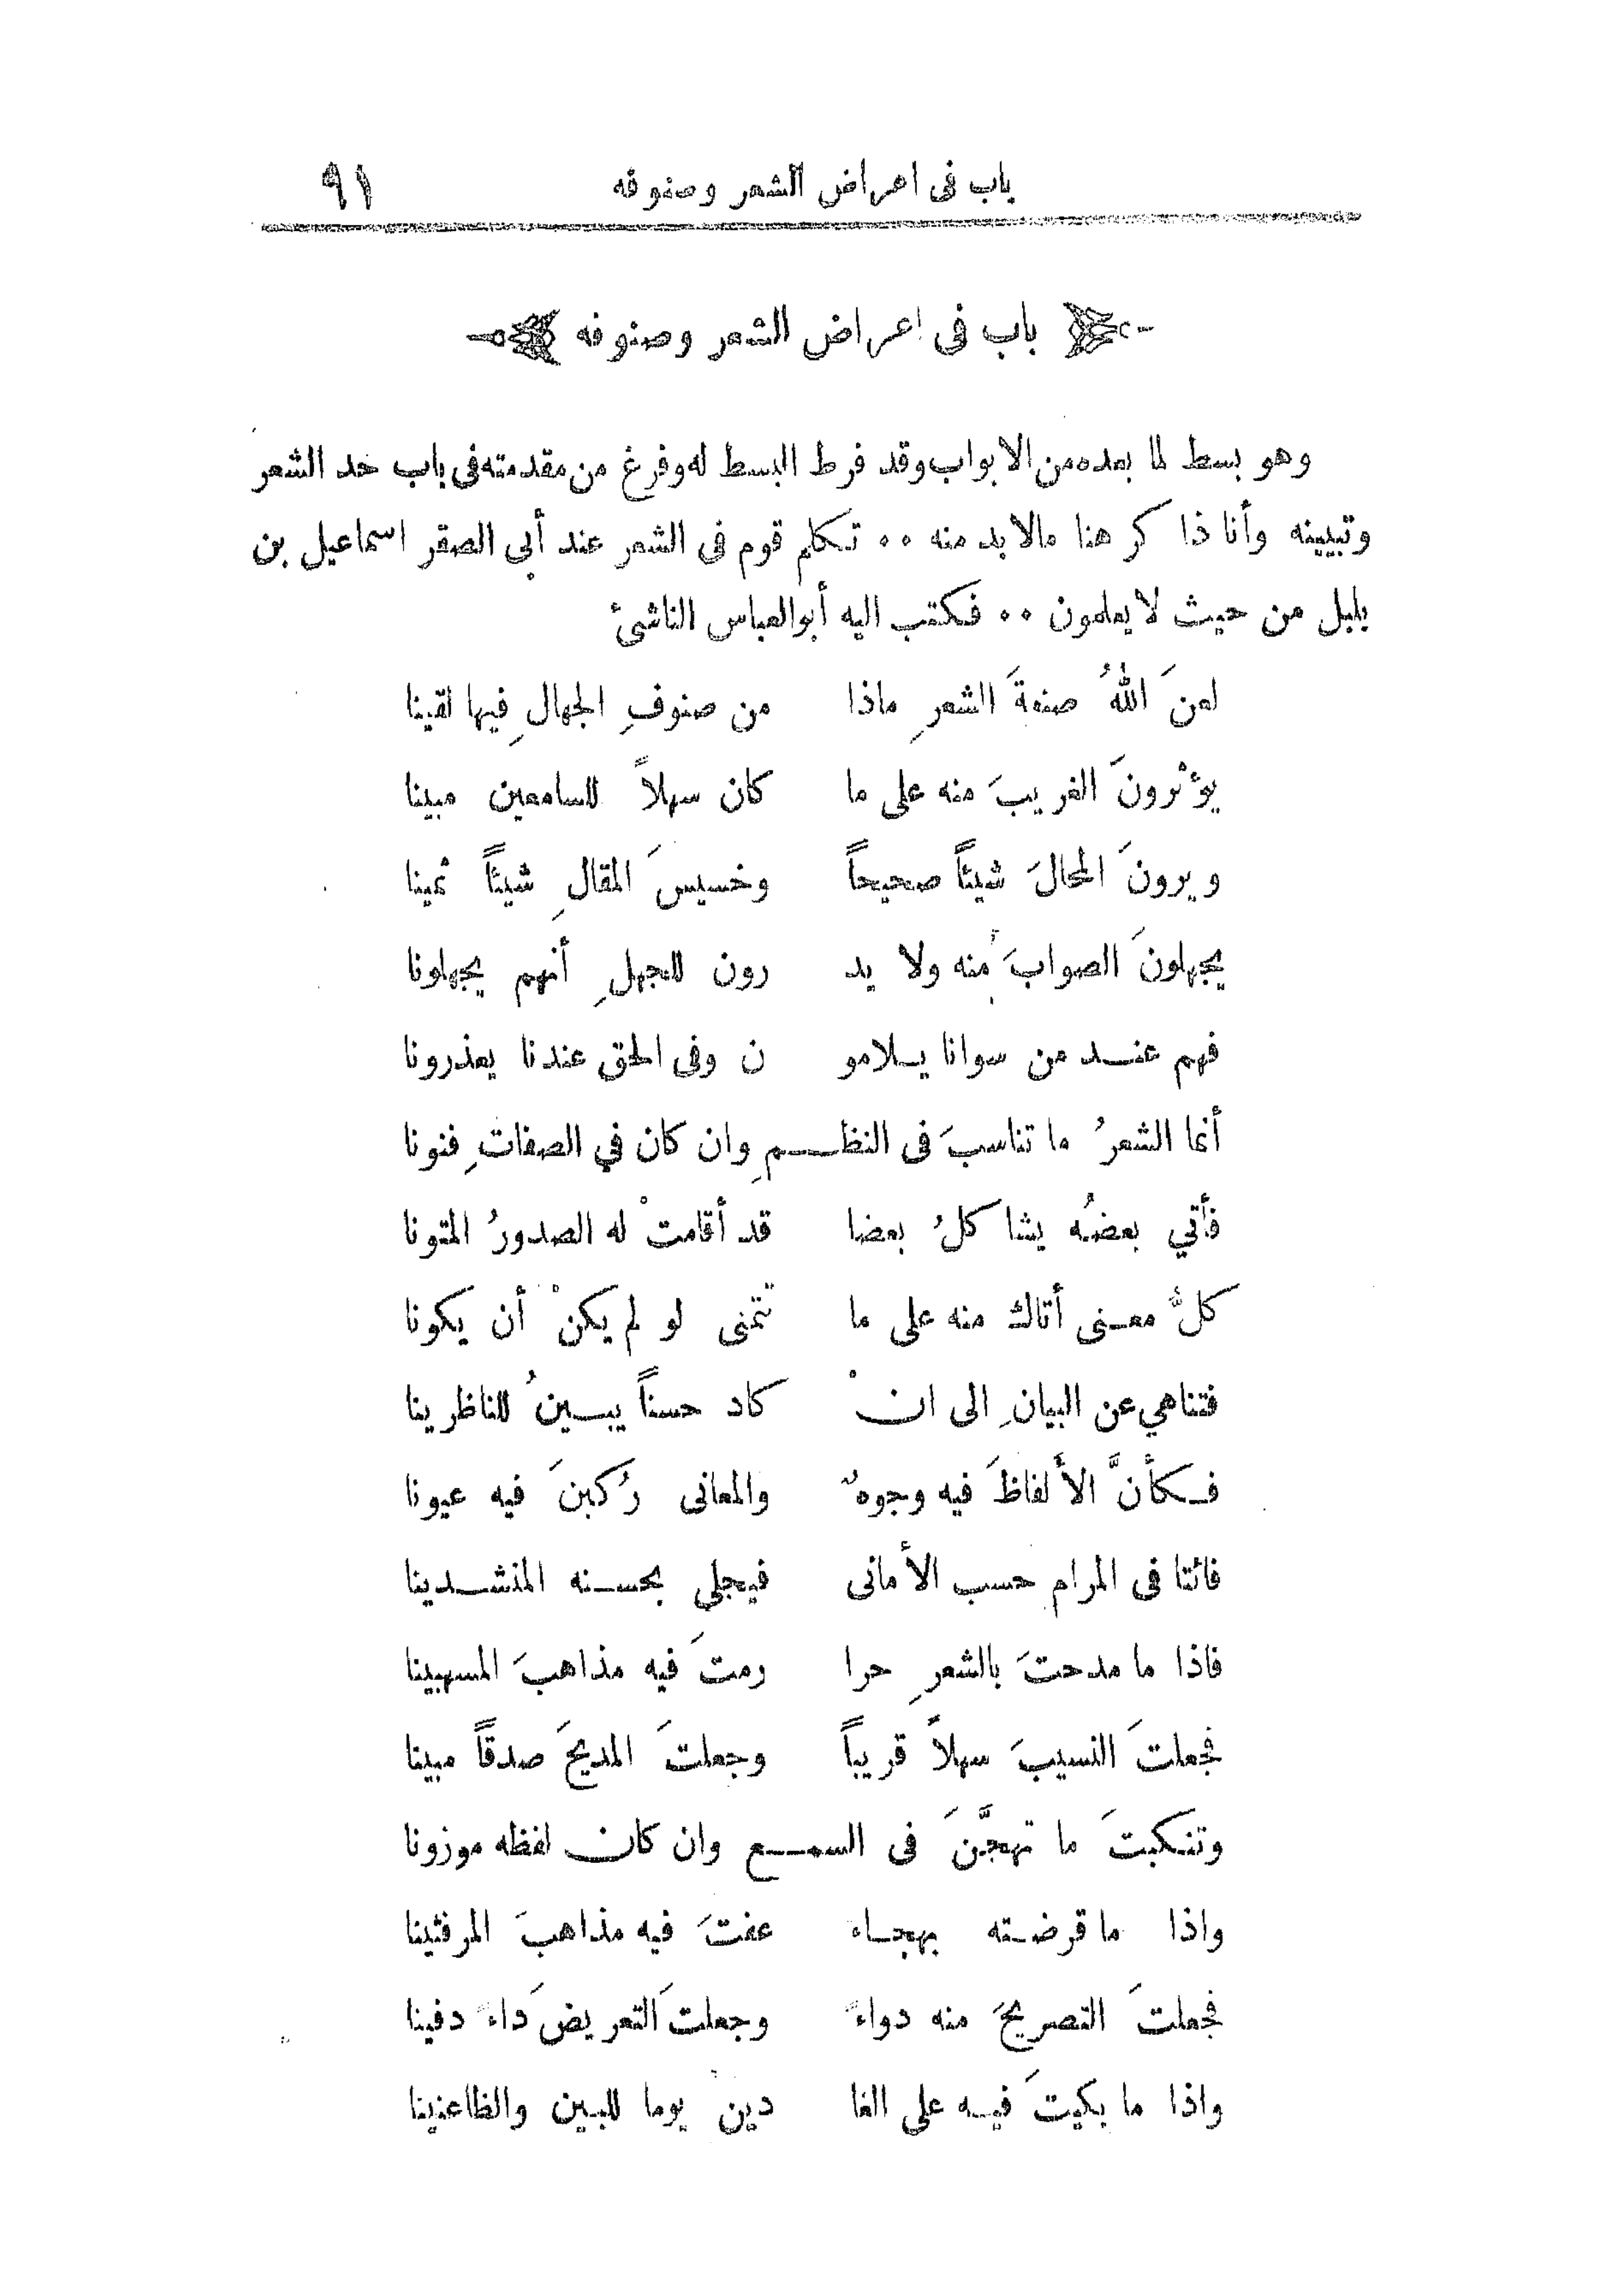 باب فى اعراض الشعر وصنوفه ٩١
باب فى اعراض الشعر وصنوفه
وهو بسط لما بعده من الابواب وقد فرط البسط له وفرغ من مقدمته فى باب حد الشعر
وتبيينه وأنا ذا كر هنا مالابد منه ٠٠ تكلم قوم فى الشعر عند أبى الصقر اسماعيل بن
بلبل من حيث لا يعلمون ٠٠ فكتب اليه أبو العباس الناشئ
لعنَ اللهُ صنعةَ الشعرِ ماذا من صنوفِ الجهالِ فيها لقينا
يؤثرونَ الغريبَ منه على ما كان سهلاً للسامعين مبينا
ويرونَ المحالَ شيئاً صحيحاً وخسيسَ المقالِ شيئاً ثمينا
يجهلونَ الصوابَ منه ولا يد رون للجهلِ أنهم يجهلونا
فهم عنـد من سوانا يـلامو ن وفى الحق عندنا يعذرونا
أنما الشعرُ ما تناسبَ فى النظـــمِ وان كان في الصفاتِ فنونا
فأتي بعضُه يشا كلُ بعضا قد أقامتْ له الصدورُ المتونا
كلُّ معـنى أتاك منه على ما تتمنى لو لم يكنْ أن يكونا
فتناهي عن البيانِ الى انْ كاد حسناً يبـينُ للناظرينا
فـكأنَّ الأ لفاظَ فيه وجوهٌ والمعانى رُكبنَ فيه عيونا
فائتا فى المرام حسب الأ مانى فيجلي بحسـنه المنشـدينا
فاذا ما مدحتَ بالشعرِ حرا رمتَ فيه مذاهبَ المسهبينا
فجعلتَ النسيبَ سهلاً قريباً وجعلتَ المديحَ صدقاً مبينا
وتنـكبتَ ما تهجَّنَ فى السمـــع وان كان لفظه موزونا
واذا ما قرضـته بهجـاء عفتَ فيه مذاهبَ المرفثينا
فجعلتَ التصريحَ منه دواءً وجعلتَ التعريضَ داءً دفينا
واذا ما بكيتَ فيـه على الغا دين يوما للبـين والظاعنينا